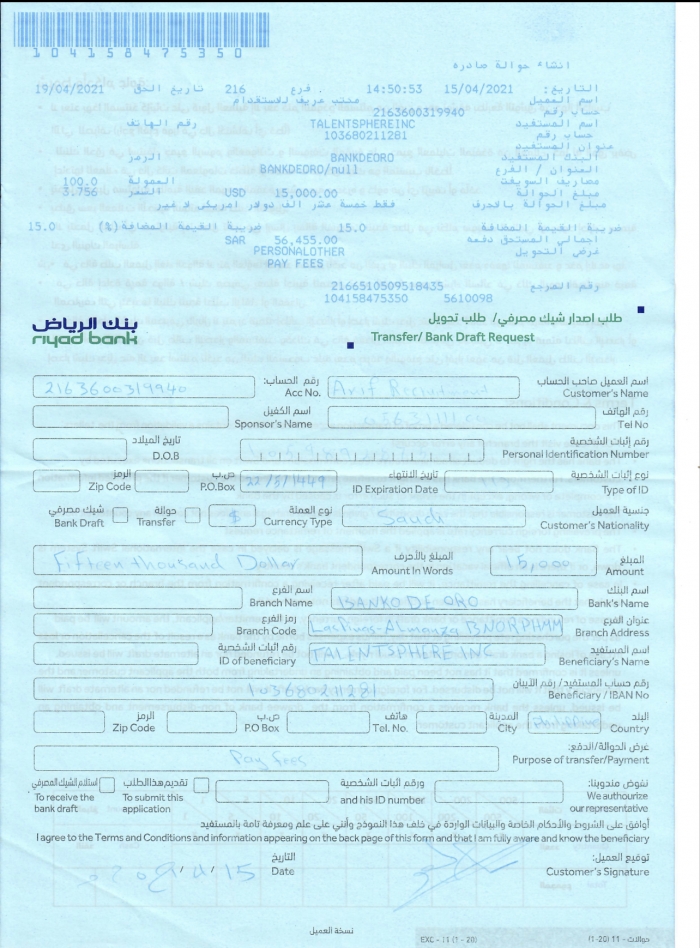 104158475350
انشاء حوالة صادره
التاريخ: 15/04/2021 14:50:53 فرع 216 تاريخ الحق 19/04/2021
اسم العميل مكتب عريف للاستقدام
حساب رقم 2163600319940
اسم المستفيد TALENTSPHEREINC رقم الهاتف
حساب رقم 103680211281
عنوان المستفيد
البنك المستفيد BANKDEORO الرمز
العنوان / الفرع BANKDEORO/null
مصاريف السويفت العمولة 100.0
مبلغ الحوالة USD 15,000.00 السعر 3.756
مبلغ الحوالة بالاحرف فقط خمسة عشر الف دولار امريكى لا غير
ضريبة القيمة المضافة 15.0 ضريبة القيمة المضافة (%) 15.0
اجمالي المستحق دفعه SAR 56,455.00
غرض التحويل PERSONALOTHER
PAY FEES
رقم المرجع 2166510509518435
104158475350 5610098
بنك الرياض
riyad bank
طلب اصدار شيك مصرفي/ طلب تحويل
Transfer/ Bank Draft Request
اسم العميل صاحب الحساب
Customer's Name Arif Recruitment
رقم الحساب:
Acc No. 2163600319940
رقم الهاتف
Tel No
اسم الكفيل
Sponsor's Name
رقم إثبات الشخصية
Personal Identification Number
تاريخ الميلاد
D.O.B
نوع إثبات الشخصية
Type of ID
تاريخ الانتهاء
ID Expiration Date 22/8/1449
ص.ب
P.O.Box
الرمز
Zip Code
جنسية العميل
Customer's Nationality Saudi
نوع العملة
Currency Type $
حوالة
Transfer
شيك مصرفي
Bank Draft
المبلغ
Amount 15,000
المبلغ بالأحرف
Amount In Words Fifteen thousand Dollar
اسم البنك
Bank's Name BANKO DE ORO
اسم الفرع
Branch Name
عنوان الفرع
Branch Address
رمز الفرع
Branch Code
اسم المستفيد
Beneficiary's Name TALENTSPHERE INC
رقم اثبات الشخصية
ID of beneficiary
رقم حساب المستفيد/ رقم الآيبان
Beneficiary / IBAN No 103680211281
البلد
Country
المدينة
City
هاتف
Tel. No.
ص.ب
P.O Box
الرمز
Zip Code
غرض الحوالة/الدفع:
Purpose of transfer/Payment Pay fees
نفوض مندوبنا:
We authourize
our representative
ورقم اثبات الشخصية
and his ID number
تقديم هذا الطلب
To submit this
application
استلام الشيك المصرفي
To receive the
bank draft
أوافق على الشروط والأحكام الخاصة والبيانات الواردة في خلف هذا النموذج وأنني على علم ومعرفة تامة بالمستفيد
I agree to the Terms and Conditions and information appearing on the back page of this form and that I am fully aware and know the beneficiary
توقيع العميل:
Customer's Signature
التاريخ
Date
نسخة العميل
EXC - 11 (1 - 20)
حوالات - 11 (20-1)